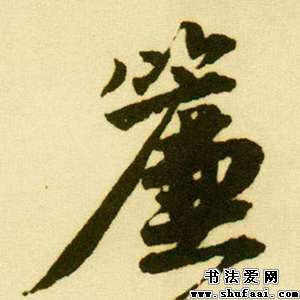 簾
书法爱网
www.shufaai.com